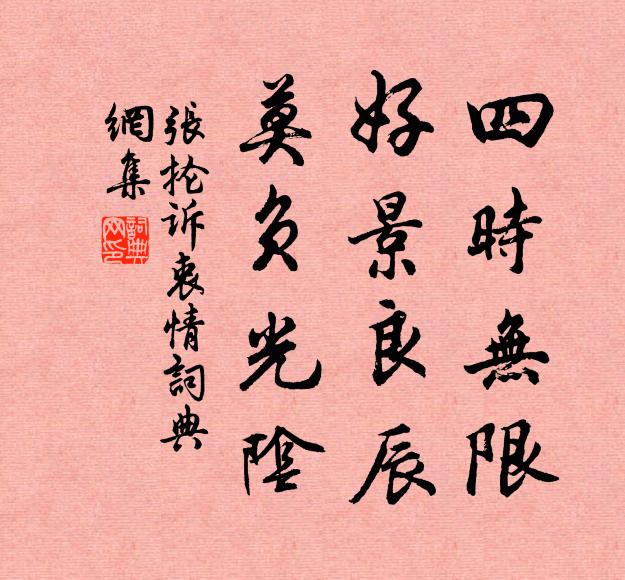 四時無限
好景良辰
莫负光陰
張抡诉衷情詞典
網集
詞典
网印